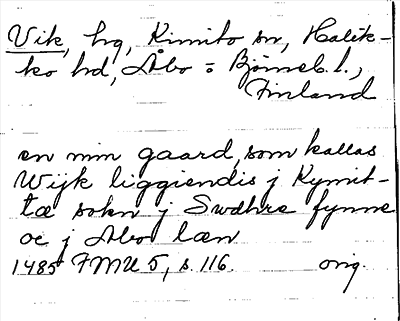 Vik, hg, Kimito sn, Halik-
ko hd, Åbo = Björneb. l.,
Finland
en min gaard, som kallas
Wijk liggiendis j Kymit-
tæ sokn j Swdhre fynne
oc j Abo læn
1485 FMU 5, s. 116. orig.